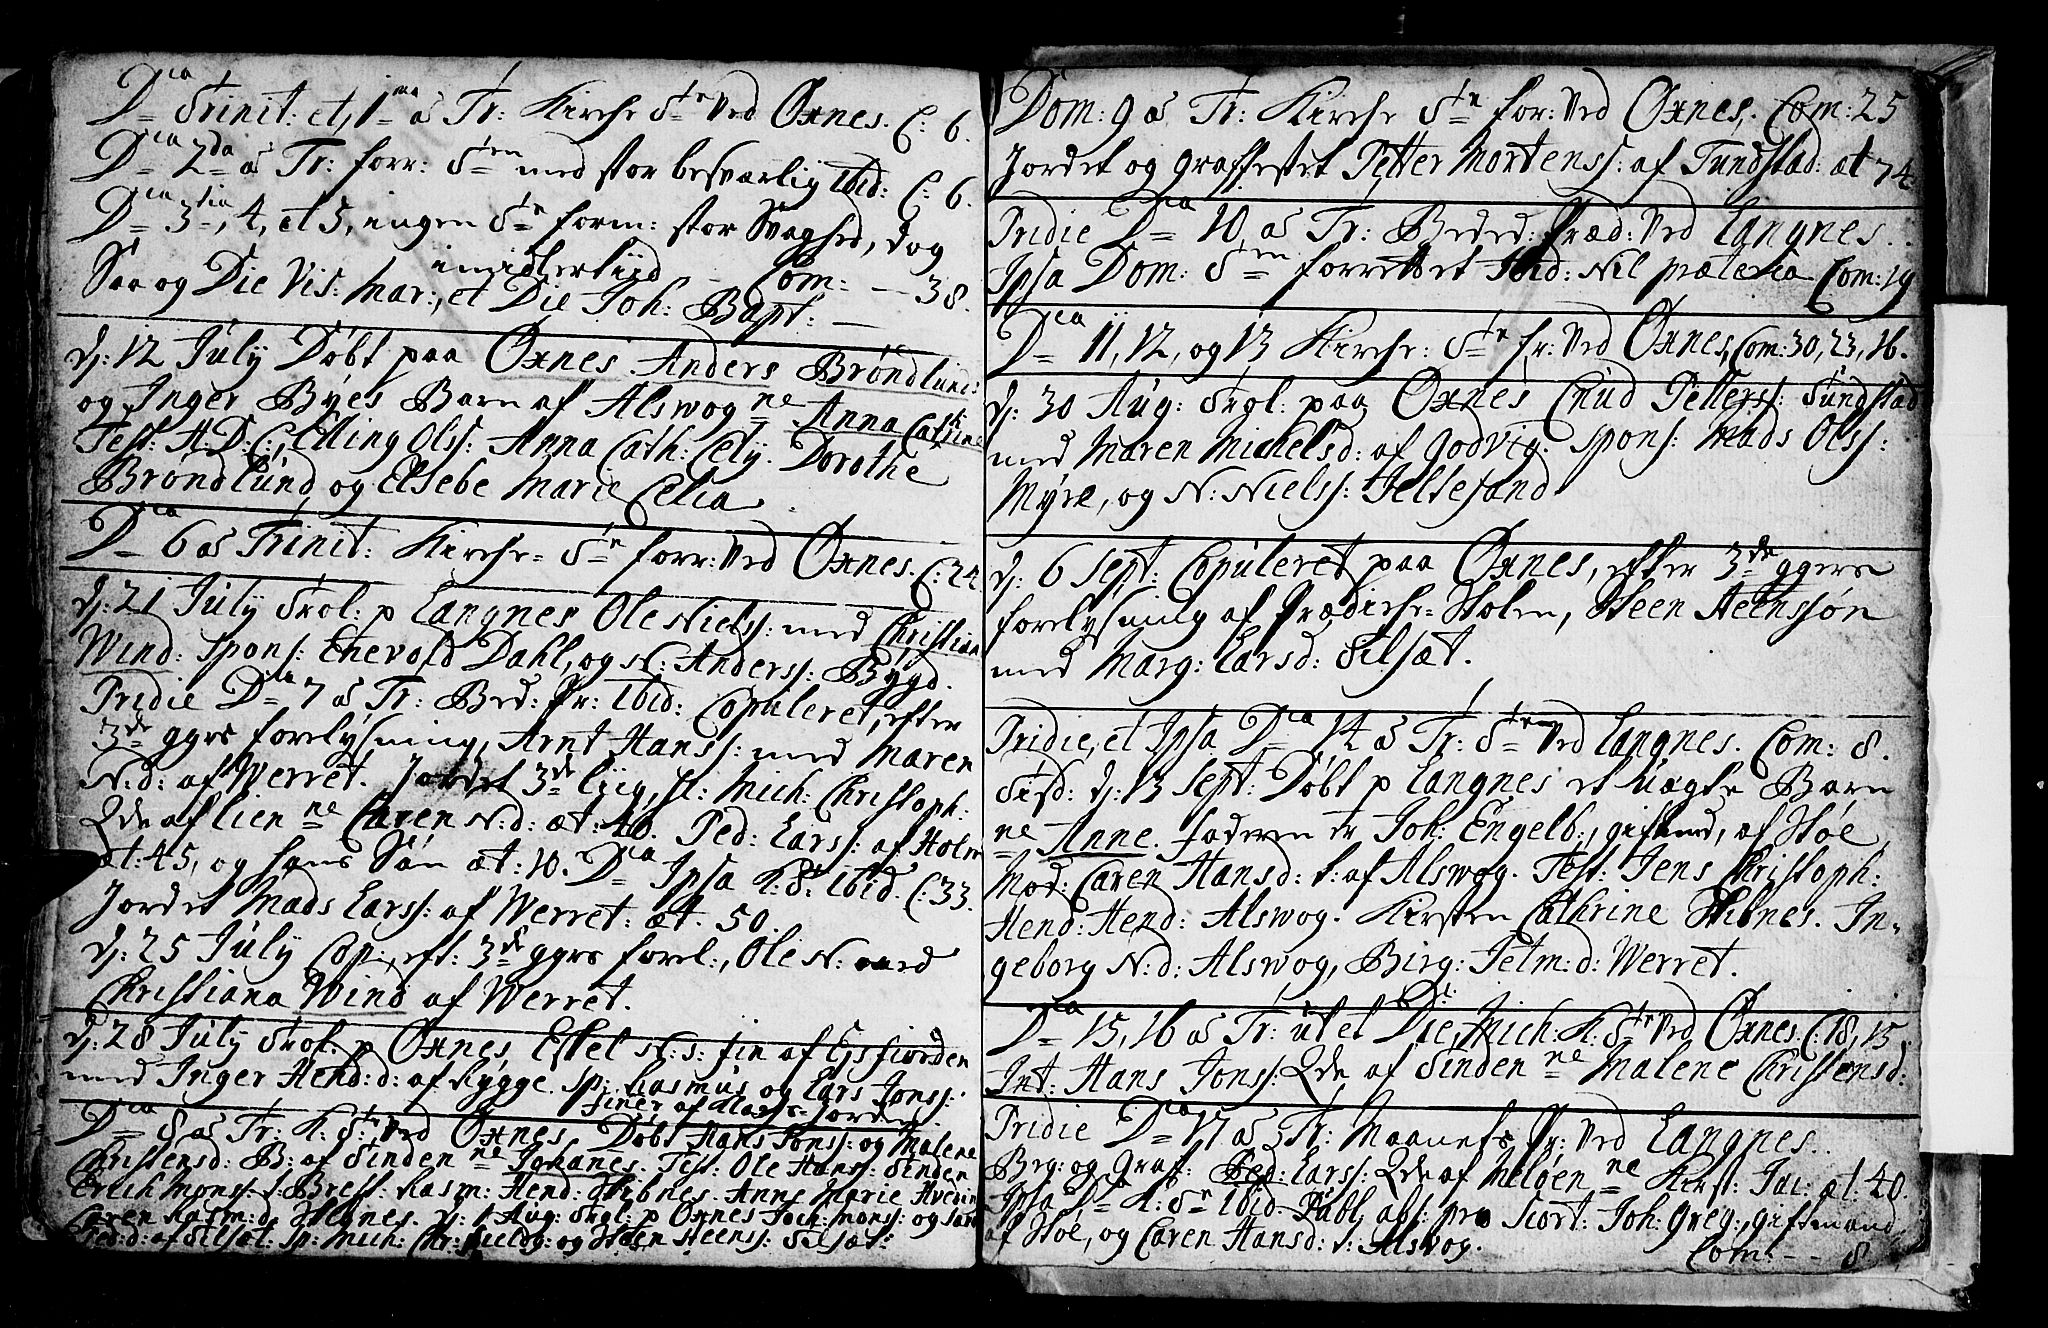 D^ca Trinit: et, 1^ma á Tr: Kirche S^te ved Øxnes. C: 6.
D^ca 2^da á Tr: forr: S^ten med stor besværlig ibid: C: 6.
D^ca 3^tia, 4, et 5, ingen S^te form: stor Svaghed, dog
imidlertijd Com: — 38.
Saa og Die Vis: Mar:, et Die Joh: Bapt:
dj: 12 July Døbt paa Øxnes Anders Brøndlunds
og Inger Byes Barn af Alswog ne Anna Catrine
Test: H. D: C:, Elling Olss: Anna Cath: Cely. Dorothe
Brøndlund og Elsebe Marie Celia.
D^ca 6 á Trinit: Kirche S^te forr: ved Øxnes. C: 24
dj: 21 July Trol: p Langnes Ole Nielss: med Christian
Wind: Spons: Enevold Dahl, og N: Anderss: Bygd.
Pridie D^ca 7 á Tr: Bed: Pr: ibid: Copuleret, efter
3^de ggrs forelysning, Arnt Hanss: med Maren
N:d: af Werret. Jordet 3^de liig, sl: Mich: Christoph:
Qde af Lien ne Caren N:d: æt: 40. Ped: Larss: af Holm
æt: 45, og hans Søn æt: 10. D^ca Ipsa K: S: ibid. C: 33.
Jordet Mads Larss: af Werret: æt. 50.
dj: 25 July Cop:, eft: 3^de ggrs forel:, Ole N: med
Christiana Wind af Werret.
dj: 28 July Trol: p Øxnes, Estel N: s: fin af Ejsfiorden
med Inger Hend:d: af Rygge. Sp: Rasmus og Lars Jonss:
finer af
D^ca 8 á Tr: K: S^te ved Øxnes. Døbt Hans Jonss: og Malene
Christensd: B: af Tinden ne Johanes. Test: Ole Hans: Tinden
Erich Monss: Rasm: Hend: Stibnes. Anne Marie
Caren Rasm:d: dj: 1 Aug: Trol: p Øxnes Joch: Monss: og
Ped:d: af Tilsæt: Sp: Mich: og Steen Steenss: Tilsæt:
Dom: 9 á Tr: Kirche S^te for: ved Øxnes, Com: 25
Jordet og graffestet Petter Mortenss: af Tundstad: æt 74.
Pridie D^ca 10 á Tr: Beded: Præd: ved Langnes..
Ipsa Dom: S^ten forrettet ibid: Nil præterea Com: 19
D^ca 11, 12, og 13 Kirche: S^te fr: ved Øxnes, Com: 30, 23, 16.
dj: 30 Aug: Trol: paa Øxnes Cnud Petterss: Tundstad
med Maren Michelsd: af Godvig. Spons: Mads Olss:
Myre, og N: Nielss: Teltesand
dj: 6 Sept: Copuleret paa Øxnes, efter 3^de ggers
forelysning af Prædiche-Stolen, Steen Steenssøn
med Marg: Larsd: Tilsæt.
Pridie, et Ipsa D^ca 14 á Tr: S^te ved Langnes. Com: 8.
Tisd: dj: 13 Sept: Døbt p Langnes et Uægte Barn
ne Anne. faderen er Joh: Engelb:, giftmd, af Støe,
Mod: Caren Hansd: t: af Alswog. Test: Jens Christoph:
Hend: Hend: Alswog. Kirsten Cathrine Stibnes. In-
geborg N:d: Alswog, Birg: Jelm:d: Werret.
D^ca 15, 16 á Tr: ut et Die Mich: K: S^te ved Øxnes. C: 18, 15.
Int: Hans Jonss: Qde af Tinden ne Malene Christensd:
Pridie D^ca 17 á Tr: Maaneds Pr: ved Langnes..
Beg: og Graf: Ped: Larss: Qde af Meløen ne Kirst: Jac: æt: 40.
Ipsa D^ca K: S^te ibid. Publ. abs: pro Scort: Joh: Greg:, giftmand
af Støe, og Caren Hansd: t: Alswog.
Com: - - 8